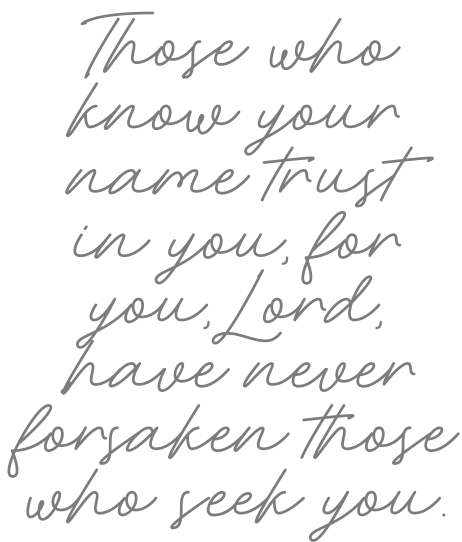 Those who
know your
name trust
in you, for
you, Lord,
have never
forsaken those
who seek you.